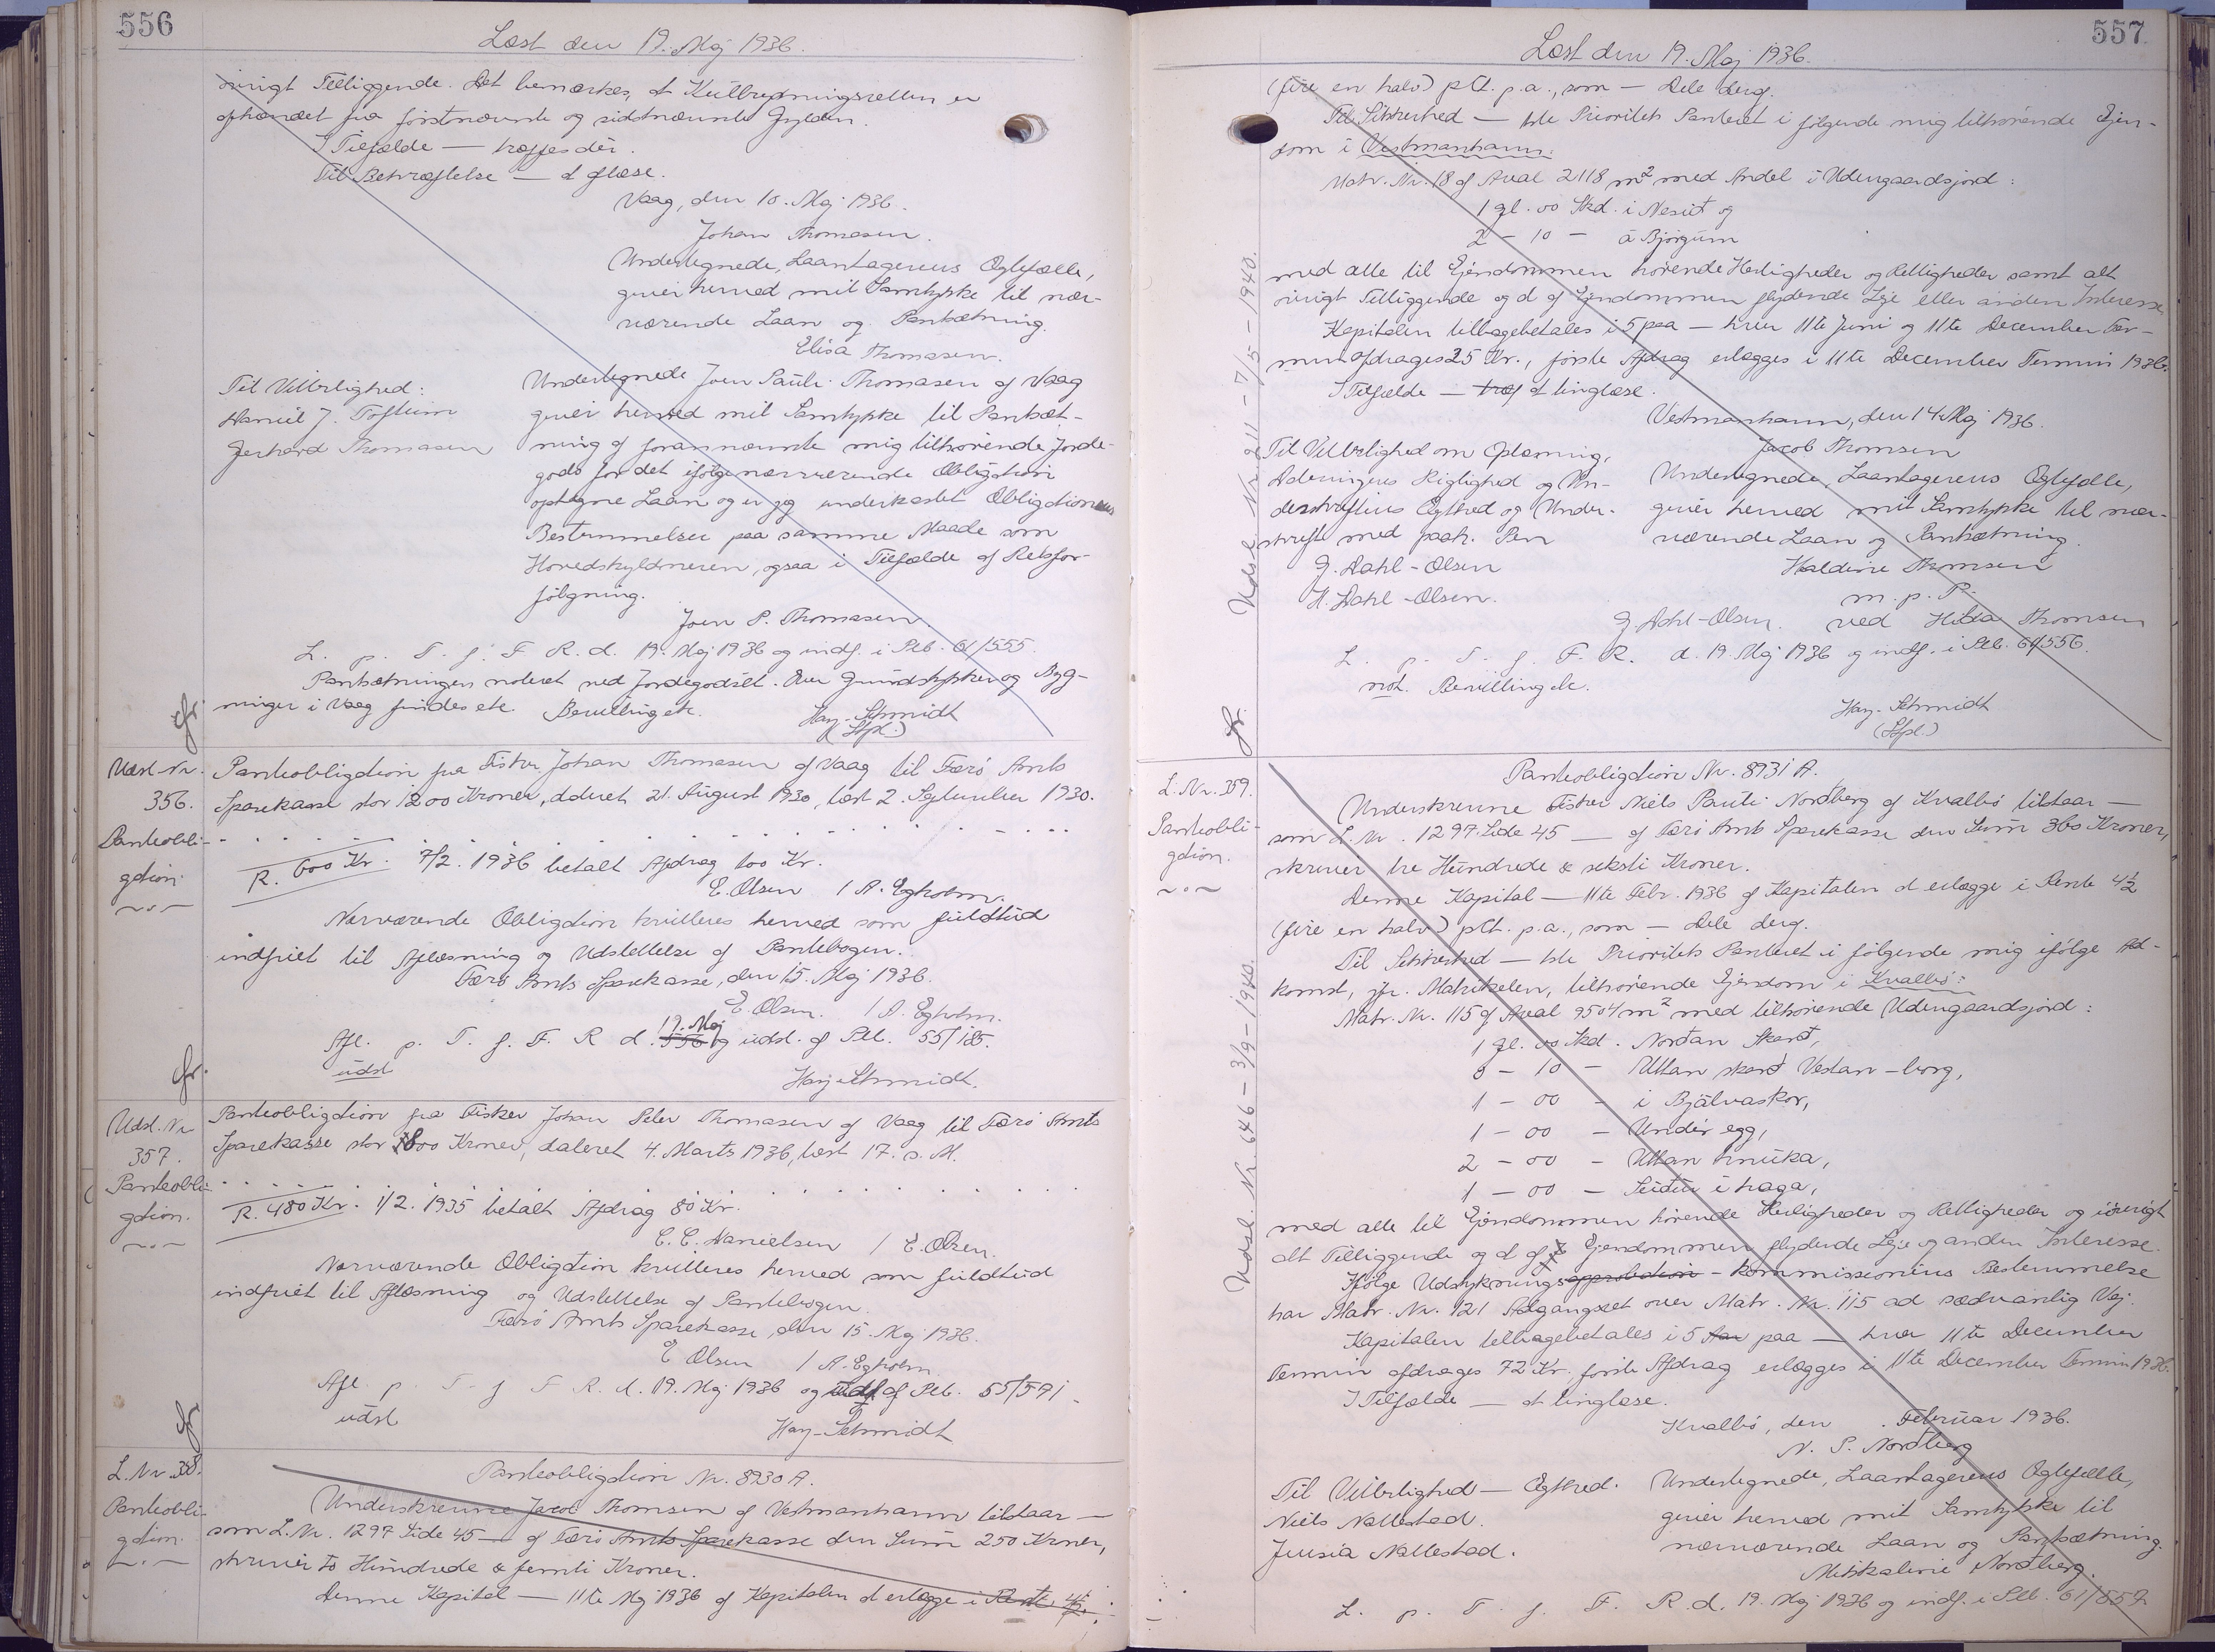 556
Læst den 19. Maj 1936.
øvrigt Tilliggende. Det bemærkes, at Kultbrydningsretten er
afhændet fra førstnævnte og sidstnævnte Gylden.
I Tilfælde — træffes dér.
Til Bekræftelse — at glæse.
Vaag, den 10. Maj 1936.
Johan Thomasen.
Undertegnede, Laantagerens Ægtefælle,
giver herved mit Samtykke til nær-
værende Laan og Pantsætning.
Elisa Thomasen.
Til Vitterlighed:
Daniel J. Toftum
Gerhard Thomasen
Undertegnede Joen Pauli Thomasen af Vaag
giver herved mit Samtykke til Pantsæt-
ning af forannævnte mig tilhørende Jorde-
gods for det ifølge nærværende Obligation
optagne Laan og er jeg underkastet Obligationens
Bestemmelser paa samme Maade som
Hovedskyldneren, ogsaa i Tilfælde af Retsfor-
følgning.
Joen P. Thomasen.
L. p. T. f. F. R. d. 19. Maj 1936 og indf. i Ptb. 61/555.
Pantsætningen noteret ved Jordegodset. Over Grundstykker og Byg-
ninger i Vaag findes etc. Bevilling etc.
Hay-Schmidt
(Stpl.)
fr.
Udsl. Nr.
356.
Panteobli-
gation.
Panteobligation fra Fisker Johan Thomasen af Vaag til Færø Amts
Sparekasse stor 1200 Kroner, dateret 21. August 1930, læst 2. September 1930.
R. 600 Kr. 7/2. 1936 betalt Afdrag 100 Kr.
E. Olsen / A. Egholm.
Nærværende Obligation kvitteres herved som fuldtud
indfriet til Aflæsning og Udslettelse af Pantebogen.
Færø Amts Sparekasse, den 15. Maj 1936.
E. Olsen. / A. Egholm.
Afl. p. T. f. F. R d. 19. Maj 556 og udsl. af Ptb. 55/185.
udsl
Hay-Schmidt.
fr.
Udsl. Nr
357.
Panteobli-
gation.
Panteobligation fra Fisker Johan Peter Thomasen af Vaag til Færø Amts
Sparekasse stor 800 Kroner, dateret 4. Marts 1936, læst 17. s. M.
R. 480 Kr. 1/2. 1935 betalt Afdrag 80 Kr.
C. C. Danielsen / E. Olsen.
Nærværende Obligation kvitteres herved som fuldtud
indfriet til Aflæsning og Udslettelse af Pantebogen.
Færø Amts Sparekasse, den 15. Maj 1936.
E Olsen / A. Egholm
Afl. p. T. f F R. d. 19. Maj 1936 og udsl. af Ptb. 55/591.
udsl
Hay-Schmidt
fr.
L. Nr. 358.
Panteobli-
gation.
Panteobligation Nr. 8930 A.
Underskrevne Jacob Thomsen af Vestmanhavn tilstaar —
som L. Nr. 1297 Side 45 — af Færø Amts Sparekasse den Sum 250 Kroner,
skriver to Hundrede & femti Kroner.
Denne Kapital — 11te Maj 1936 af Kapitalen at erlægge i Rente 4½
557
Læst den 19. Maj 1936.
(fire en halv) pCt. p.a., som — Dele deraf.
Til Sikkerhed — 1ste Prioritets Panteret i følgende mig tilhørende Ejen-
dom i Vestmanhavn:
Matr. Nr. 18 af Areal 2118 m² med Andel i Udengaardsjord:
1 gl. 00 Skd. i Nesut og
2 — 10 — á Bjørgum
med alle til Ejendommen hørende Herligheder og Rettigheder samt alt
øvrigt Tilliggende og d af Ejendommen flydende Leje eller anden Interesse.
Kapitalen tilbagebetales i 5 paa — hver 11te Juni og 11te December Ter-
min afdrages 25 Kr., første Afdrag erlægges i 11te December Termin 1936.
I Tilfælde — træf at tinglæse.
Vestmanhavn, den 14. Maj 1936.
Jacob Thomsen
Til Vitterlighed om Oplæsning,
Dateringens Rigtighed og Un-
derskriftens Ægthed og Under-
skrift med paah. Pen
G. Dahl-Olsen
H. Dahl-Olsen.
Undertegnede, Laantagerens Ægtefælle,
giver herved mit Samtykke til nær-
værende Laan og Pantsætning.
Haldine Thomsen
m. p. P.
G. Dahl-Olsen. ved Hilda Thomsen
L. p. T. f. F. R. d. 19. Maj 1936 og indf. i Ptb. 61/556.
not. Bevilling etc.
Hay-Schmidt
(Stpl.)
Udsl. Nr. 211 - 7/5 - 1940.
fr.
L. Nr. 359.
Panteobli-
gation.
Panteobligation Nr. 8931 A.
Underskrevne Fisker Niels Pauli Nordberg af Kvalbø tilstaar —
som L. Nr. 1297 Side 45 — af Færø Amts Sparekasse den Sum 360 Kroner,
skriver tre Hundrede & seksti Kroner.
Denne Kapital — 11te Febr. 1936 af Kapitalen at erlægge i Rente 4½
(fire en halv) pCt. p.a., som — Dele deraf.
Til Sikkerhed — 1ste Prioritets Panteret i følgende mig ifølge Ad-
komst, jfr. Matrikelen, tilhørende Ejendom i Kvalbø:
Matr. Nr. 115 af Areal 9504 m² med tilhørende Udengaardsjord:
1 gl. 00 Skd. Norðan Skarð,
0 — 10 — Uttan skarð Vestan-borg,
1 — 00 — i Bjálvaskor,
1 — 00 — Undir egg,
2 — 00 — Uttan hnúka,
1 — 00 — Suður i haga,
med alle til Ejendommen hørende Herligheder og Rettigheder og iøvrigt
alt Tilliggende og d af Ejendommen flydende Leje og anden Interesse.
Ifølge Udstykningsapprobation-kommissionens Bestemmelse
har Matr. Nr. 121 Adgangsret over Matr. Nr. 115 ad sædvanlig Vej.
Kapitalen tilbagebetales i 5 Aar paa — hver 11te December
Termin afdrages 72 Kr. første Afdrag erlægges i 11te December Termin 1936.
I Tilfælde — at tinglæse.
Kvalbø, den . Februar 1936.
N. P. Nordberg
Til Vitterlighed — Ægthed.
Niels Nallestad.
Jensia Nallestad.
Undertegnede, Laantagerens Ægtefælle,
giver herved mit Samtykke til
nærværende Laan og Pantsætning.
Mikkaline Nordberg.
L. p. T. f. F. R. d. 19. Maj 1936 og indf. i Ptb. 61/557
Udsl. Nr. 646 - 3/9 - 1940.